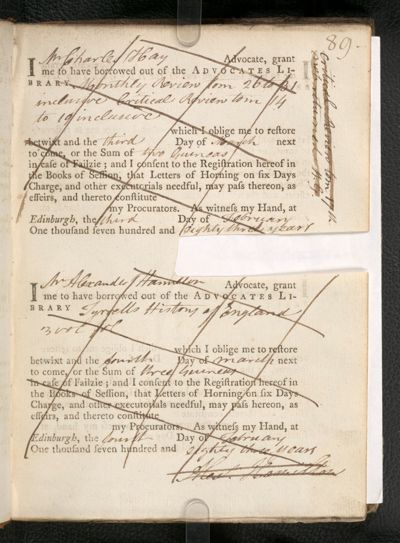 89.
I Mr Charles Hay Advocate, grant
me to have borrowed out of the ADVOCATES LI-
BRARY Monthly Review tom 26 to 61
inclusive Critical Review tom 14
to 19 inclusive
which I oblige me to restore
betwixt and the third Day of March next
to come, or the Sum of two Guineas
in case of Failzie; and I consent to the Registration hereof in
the Books of Session, that Letters of Horning on six Days
Charge, and other executorials needful, may pass thereon, as
effeirs, and thereto constitute
my Procurators. As witness my Hand, at
Edinburgh, the third Day of February
One thousand seven hundred and eighty three years
Critical Review tom
I Mr Alexander Hamilton Advocate, grant
me to have borrowed out of the ADVOCATES LI-
BRARY Tyrrells History of England
3 vol
which I oblige me to restore
betwixt and the fourth Day of March next
to come, or the Sum of three Guineas
in case of Failzie; and I consent to the Registration hereof in
the Books of Session, that Letters of Horning on six Days
Charge, and other executorials needful, may pass hereon, as
effeirs, and thereto constitute
my Procurators. As witness my Hand, at
Edinburgh, the fourth Day of February
One thousand seven hundred and eighty three years
Hamilton